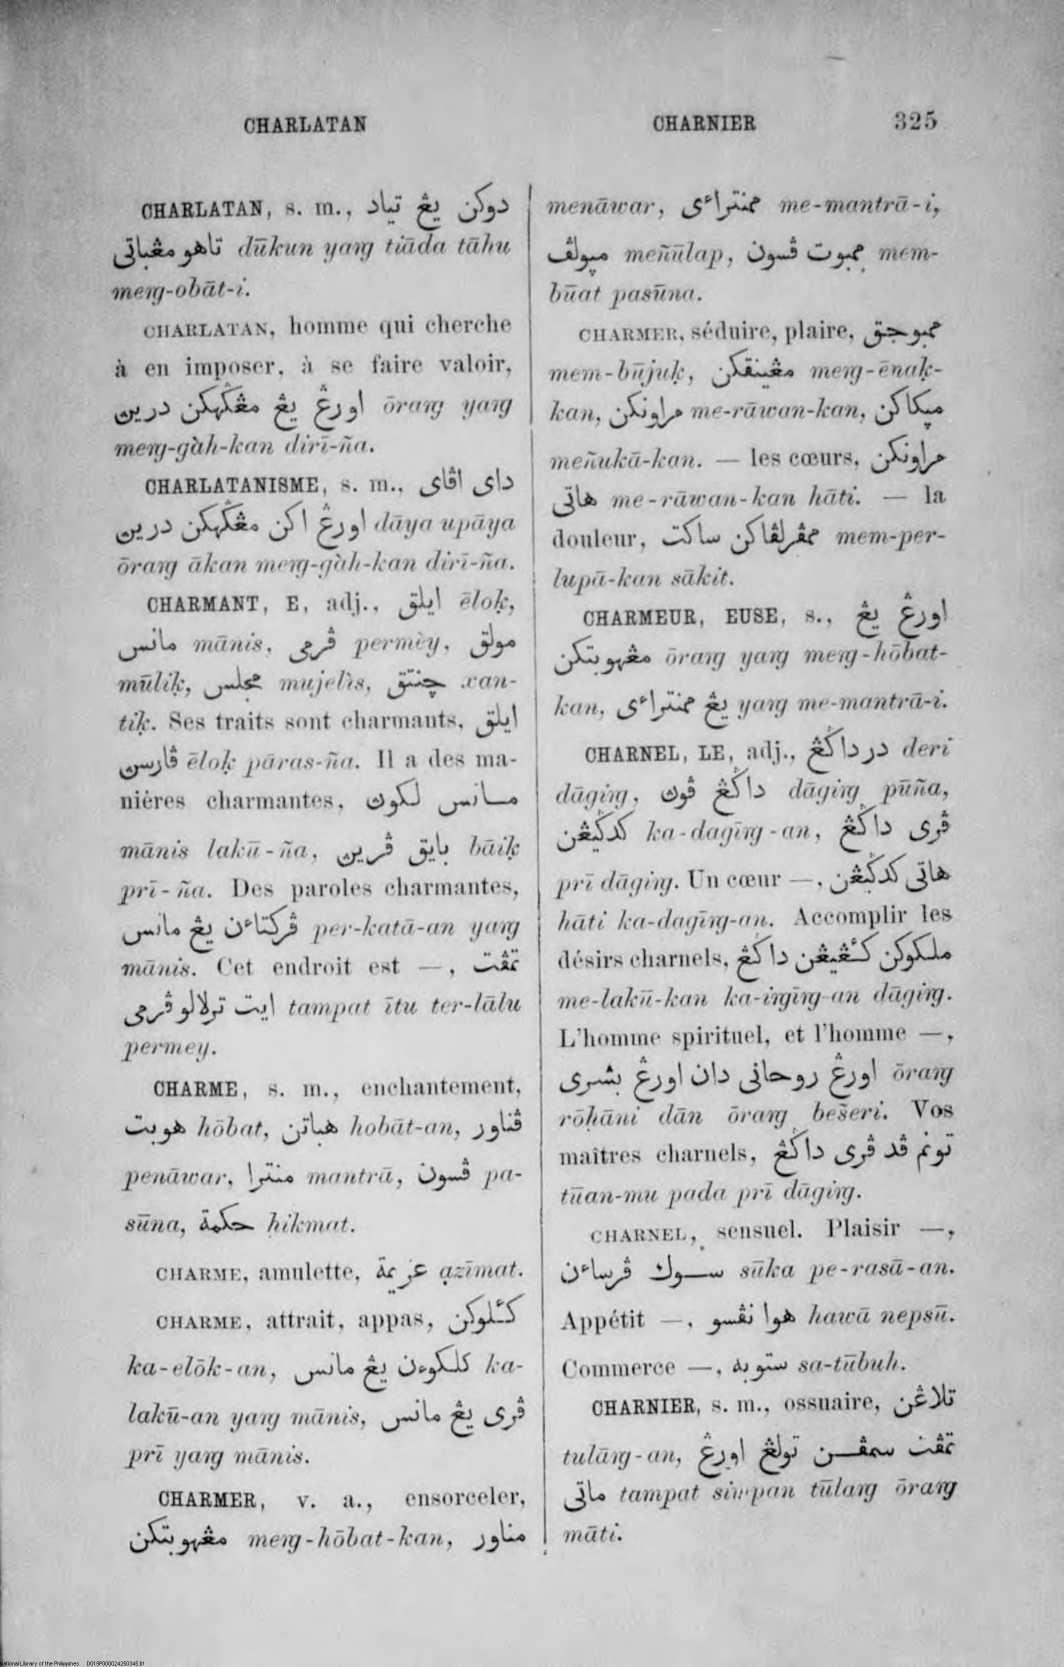 CHARLATAN
CHARNIER 325
CHARLATAN, s. m., دوكن يڠ تياد
تاهو مڠباتي dūkun yaɴg tiāda tāhu
meɴg-obāt-i.
CHARLATAN, homme qui cherche
à en imposer, à se faire valoir,
اورڠ يڠ مڠݢهكن درين ōraɴg yaɴg
meɴg-gàh-kan dirī-ña.
CHARLATANISME, s. m., داي اڤاي
اورڠ اكن مڠݢهكن درين dāya upāya
ōraɴg ākan meɴg-gàh-kan dirī-ña.
CHARMANT, E, adj., ايلق ēloḳ,
مانس mānis, ڤرمي permèy, مولق
mūliḳ, مجلس mujelìs, چنتق xan-
tiḳ. Ses traits sont charmants, ايلق
ڤارسن ēloḳ pāras-ña. Il a des ma-
nières charmantes, مانس لكون
mānis lakū-ña, بايق ڤرين bāiḳ
prī-ña. Des paroles charmantes,
ڤركتاءن يڠ مانس per-katā-an yaɴg
mānis. Cet endroit est —, تمڤت
ايت ترلالو ڤرمي tampat ītu ter-lālu
permey.
CHARME, s. m., enchantement,
هوبت hōbat, هباتن hobāt-an, ڤناور
penāwar, منترا mantrā, ڤسون pa-
sūna, حكمة ḥikmat.
CHARME, amulette, عزيمة ạzīmat.
CHARME, attrait, appas, كئلوكن
ka-elōk-an, كلكوءن يڠ مانس ka-
lakū-an yaɴg mānis, ڤري يڠ مانس
prī yaɴg mānis.
CHARMER, v. a., ensorceler,
مڠهوبتكن meɴg-hōbat-kan, مناور
menāwar, ممنتراءي me-mantrā-i,
مپولڤ meñūlap, ممبوت ڤسون mem-
būat pasūna.
CHARMER, séduire, plaire, ممبوجق
mem-būjuḳ, مڠينقكن meɴg-ēnaḳ-
kan, مراونكن me-rāwan-kan, مپكاكن
meñukā-kan. — les cœurs, مراونكن
هاتي me-rāwan-kan hāti. — la
douleur, ممڤرلڤاكن ساكت mem-per-
lupā-kan sākit.
CHARMEUR, EUSE, s., اورڠ يڠ
مڠهوبتكن ōraɴg yaɴg meɴg-hōbat-
kan, يڠ ممنتراءي yaɴg me-mantrā-i.
CHARNEL, LE, adj., درداݢڠ deri
dāgiɴg, داݢڠ ڤون dāgiɴg pūña,
كدݢيڠن ka-dagīɴg-an, ڤري داݢڠ
prī dāgiɴg. Un cœur —, هاتي كدݢيڠن
hāti ka-dagīɴg-an. Accomplir les
désirs charnels, ملكوكن كئڠيڠن داݢڠ
me-lakū-kan ka-iɴgīɴg-an dāgiɴg.
L'homme spirituel, et l'homme —,
اورڠ روحاني دان اورڠ بشري ōraɴg
rōḥāni dān ōraɴg bes̃eri. Vos
maîtres charnels, تونم ڤد ڤري داݢڠ
tūan-mu pada prī dāgiɴg.
CHARNEL, sensuel. Plaisir —,
سوك ڤرساءن sūka pe-rasā-an.
Appétit —, هوا نڤسو hawā nepsū.
Commerce —, ستوبه sa-tūbuh.
CHARNIER, s. m., ossuaire, تلاڠن
tulāɴg-an, تمڤت سمڤن تولڠ اورڠ
ماتي tampat simpan tūlaɴg ōraɴg
māti.
National Library of the Philippines